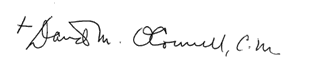 + David M. O'Connell, C.M.